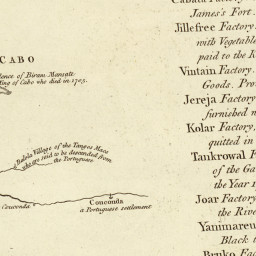 CABO
dence of Biram Mansati
King of Cabo who died in 1705.
Dalola Village of the Tangos Maos
who are said to be descended from
the Portuguese
Couconda
Couconda
a Portuguese settlement
James's Fort.
Jillefree Factory
with Vegetable
paid to the K
Vintain Factory.
Goods. Pro
Jereja Factory
furnished n
Kolar Factory,
quitted in
Tankrowal F
of the Ga
the Year 1
Joar Factory
the Rive
Yanimareu
Black t
Bruko Fact